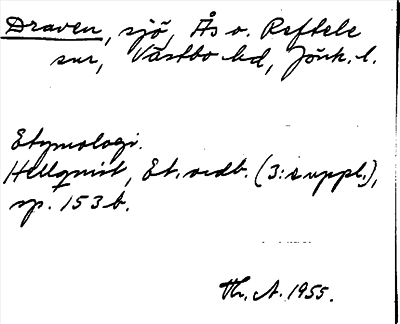 Draven, sjö, Ås o. Reftele
snr, Västbo hd, Jönk. l.
Etymologi.
Hellquist, Et. ordb. (3: suppl.),
sp. 153 b.
Th. A. 1955.